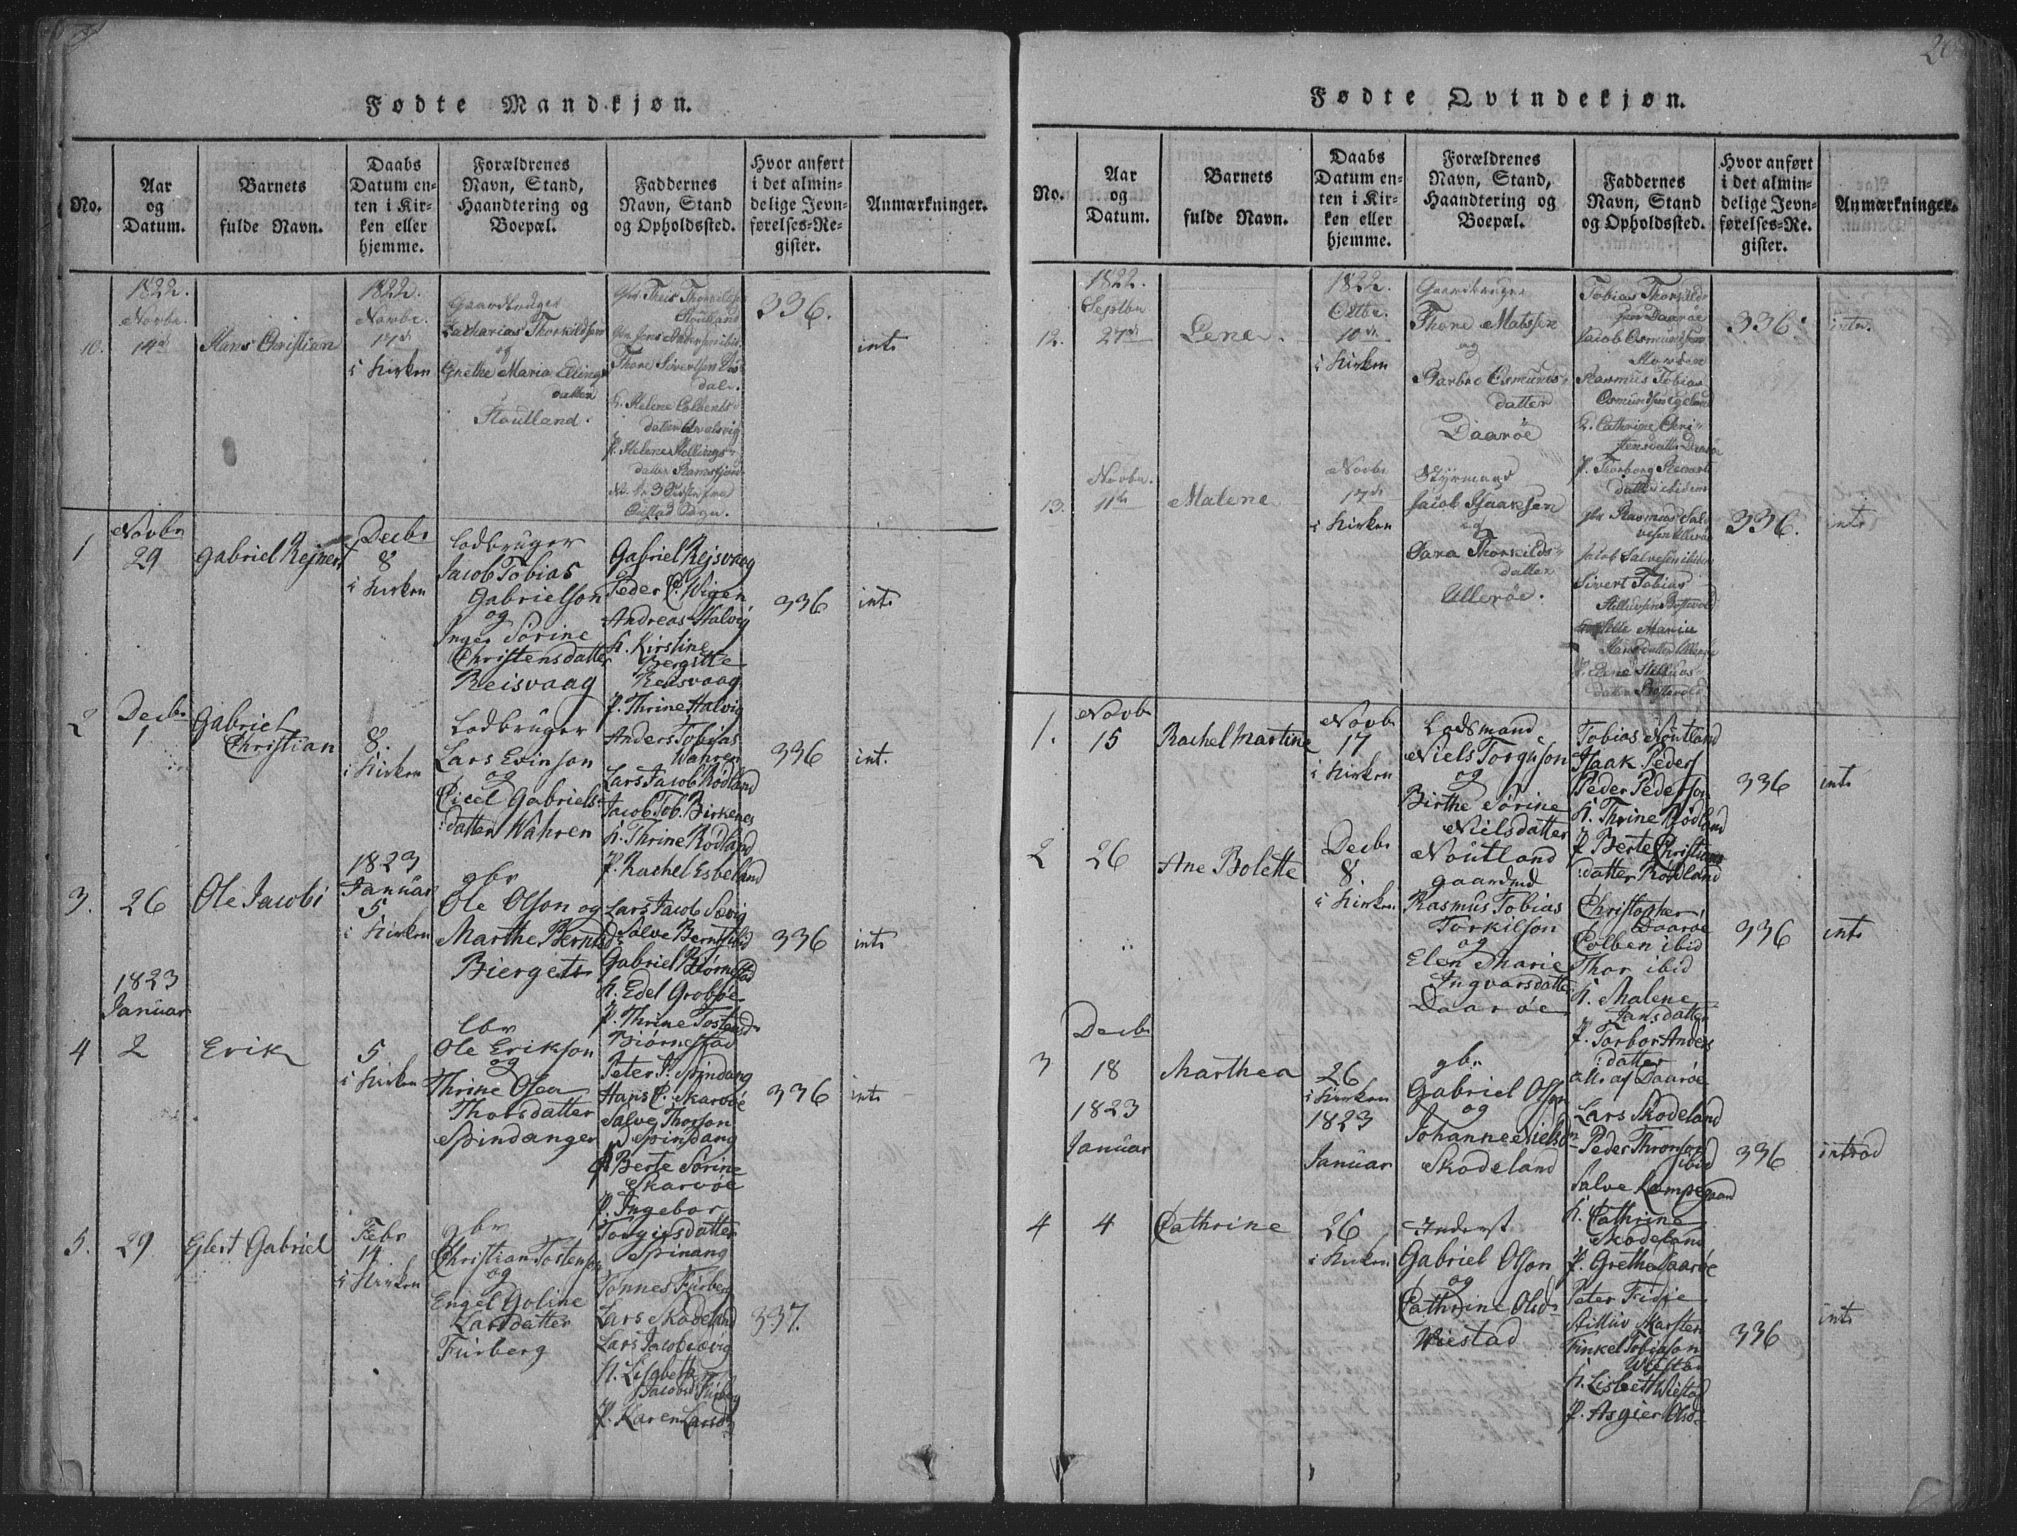 20
Fødte Mandkjøn.
No.
Aar
og
Datum.
Barnets
fulde Navn.
Daabs
Datum en-
ten i Kir-
ken eller
hjemme.
Forældrenes
Navn, Stand,
Haandtering og
Boepæl.
Faddernes
Navn, Stand
og Opholdssted.
Hvor anført
i det almin-
delige Jevn-
førelses-Re-
gister.
Anmærkninger.
10.
1822.
Novbr.
14de
Hans Christian
1822.
Novbr.
17de
i Kirken
Gaardbruger
Zacharias Thorkildsen
og
Grethe Maria Ellings
datter
Stoutland.
Gbr. Theis Thorkildsen
Stoutland
Thore Sivertsen
dal.
K. Helene Colbents
datter
P. Helene Kollings
datter
336.
int.
1
Novbr
29
Gabriel Rejner
Decbr
8
i Kirken
Lodbruger
Jacob Tobias
Gabrielson
og
Inger Sørine
Christensdatter
Reisvaag
Gabriel Rejsvaag
Peder C. Wigen
Andreas Halvig
K. Kirstine
Bergitte
Reisvaag
P. Thrine Halvig
336
int.
2
Decbr
1
Gabriel
Christian
8.
i Kirken
Lodbruger
Lars Evinson
og
Cicel Gabriels-
datter Wahren
Anders Tobias
Wahren
Lars Jacob Rødland
Jacob Tob. Birkenes
K. Thrine Rødland
P. Rachel Esbeland
336
int.
3.
26
Ole Jacobi
1823
Januar
5
i Kirken
gbr
Ole Olson og
Marthe Berntsd.
Bierget
Lars Jacob Sævig
Salve Berntson
Gabriel Biørnestad
K. Edel Grobsøe
P. Thrine Tostensd.
Biørnestad
336
int.
1823
Januar
4
2
Erik
5
i Kirken
lbr
Ole Erikson
og
Thrine Osea
Thorsdatter
Spindanger
Peter P. Spindang
Hans C. Skarvøe
Salve Thorson
Spindang
K. Berte Sørine
Skarvøe
P. Ingebor
Torgiersdatter
Spinang
336
int.
5.
29
Ejlert Gabriel
Febr
14
i Kirken
gbr
Christian Tostenson
og
Engel Goline
Larsdatter
Furberg
Tønnes Furberg
Lars Skodeland
Lars Jacob Sævig
K. Lisabeth
Jacobsd Furberg
P. Karen Larsd.
337.
Fødte Qvindekjøn.
No.
Aar
og
Datum.
Barnets
fulde Navn.
Daabs
Datum en-
ten i Kir-
ken eller
hjemme.
Forældrenes
Navn, Stand,
Haandtering og
Boepæl.
Faddernes
Navn, Stand
og Opholdssted.
Hvor anført
i det almin-
delige Jevn-
førelses-Re-
gister.
Anmærkninger.
12.
1822.
Septbr
27de
Lene.
1822.
Octbr.
10de
i Kirken
Gaardbruger
Thore Matssen
og
Barbro Osmunds-
datter
Daarøe
Tobias Thorkild-
sen Daarøe
Jacob Osmundsen
Rasmus Tobias
Osmundsen
K. Cathrine Chri-
stensdatter Daarøe
P. Thorborg
datter ibidem
336.
int.
13.
Novbr.
11te
Malene
Novbr
17de
i Kirken
Styrmand
Jacob Isaaksen
og
Sara Thorkilds-
datter
Ullerøe.
gbr Rasmus Sal-
vesen Ullerøe
Jacob Salvesen ibidem
Sivert Tobias
datter
336.
int.
1.
Novbr
15
Rachel Martine
Novbr
17
i Kirken
Lodsmand
Niels Torgusson
og
Birthe Sørine
Nielsdatter
Noutland
Tobias Noutland
Isaak Peders
Peder Pederson
K. Thrine Rødland
P. Berte Christians
datter Rødland
336
int.
2
26
Ane Bolette
Decbr
8.
i Kirken
gaardmd
Rasmus Tobias
Torkilson
og
Elen Marie
Ingvarsdatter
Daarøe
Christopher
Daarøe
Colben ibid
Thor ibid
K. Malene
Jansdatter
P. Torbor Anders
datter
alle af Daarøe
336
int.
3
Decbr
18
Marthea
26
i Kirken
gbr
Gabriel Olson
og
Johanne Nielsd
Skodeland
Lars Skodeland
Peder Thronson
ibid
Salve Lampegaard
K. Cathrine
Skodeland
P. Grethe Saarøe
336
introd
1823
Januar
4
4
Cathrine
1823
Januar
26
i Kirken
Inderst
Gabriel Olson
og
Cathrine Olsd.
Wiestad
Peter Fidje
Finkel Tobiasson
Wiestad
K. Lisbeth Wiestad
P. Asgier Olsd.
336
int.